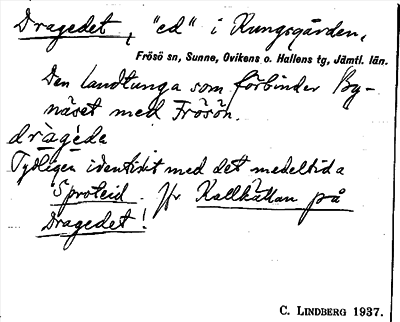 Dragedet, "ed" i Kungsgården,
Frösö sn, Sunne, Ovikens o. Hallens tg, Jämtl. län.
Den landtunga som förbinder By-
näset med Frösön.
dràgéda
Tydligen identiskt med det medeltida
Sproteid. Jfr Kallkällan på
Dragedet!
C. LINDBERG 1937.